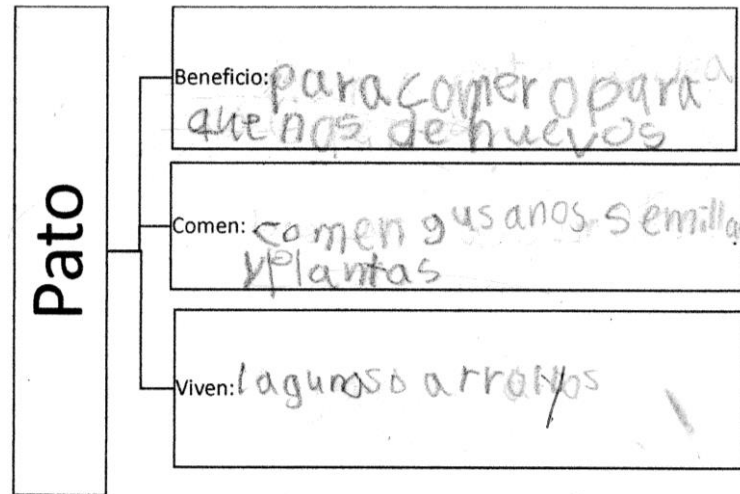 Pato
Beneficio: para comer o para
que nos de huevos
Comen: comen gusanos semilla
y plantas
Viven: lagunas o arrollos